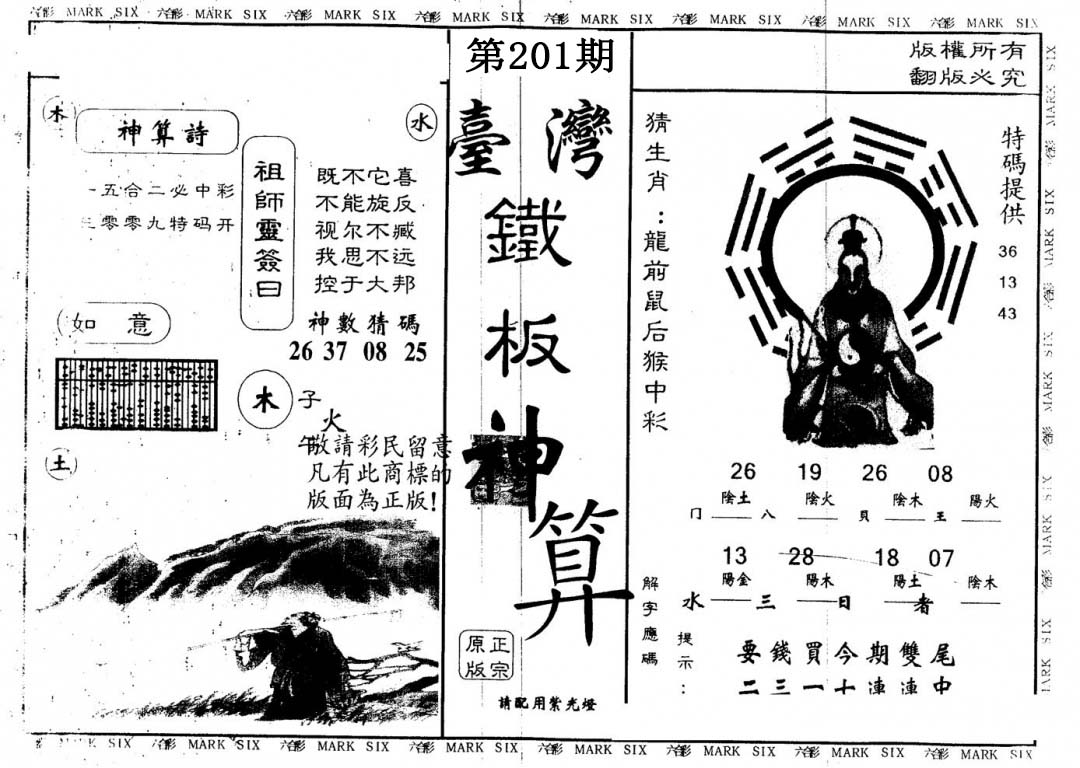 六合彩 MARK SIX 六合彩 MARK SIX 六合彩 MARK SIX 六合彩 MARK SIX 六合彩 MARK SIX 六合彩 MARK SIX 六合彩 MARK SIX 六合彩 MARK SIX
第201期
版權所有
翻版必究
木
神算詩
一五合二必中彩
三零零九特码开
水
祖師靈簽曰
既不它喜
不能旋反
视尔不臧
我思不远
控于大邦
神數猜碼
26 37 08 25
如意
木
子
火
午
土
敬請彩民留意
凡有此商標的
版面為正版!
臺灣
鐵板神算
正宗
原版
請配用紫光燈
猜生肖:龍前鼠后猴中彩
特碼提供
36
13
43
26 19 26 08
陰土 陰火 陰木 陽火
门 八 貝 王
13 28 18 07
陽金 陽木 陽土 陰木
水 三 日 者
解字應碼
提示:
要錢買今期雙尾
二三一十連連中
MARK SIX 六合彩 MARK SIX 六合彩 MARK SIX 六合彩 MARK SIX 六合彩 MARK SIX
六合彩 MARK SIX 六合彩 MARK SIX 六合彩 MARK SIX 六合彩 MARK SIX 六合彩 MARK SIX 六合彩 MARK SIX 六合彩 MARK SIX